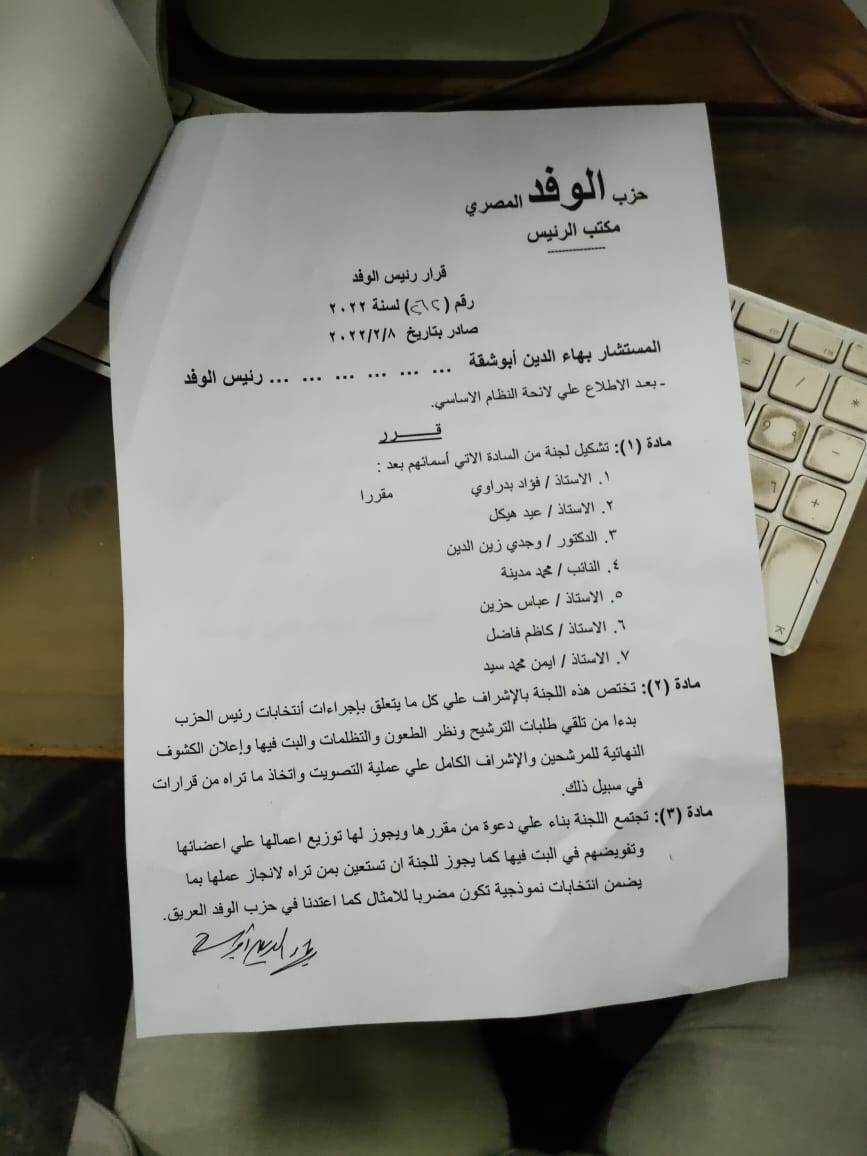 حزب الوفد المصري
مكتب الرئيس
قرار رئيس الوفد
رقم ( ) لسنة ٢٠٢٢
صادر بتاريخ ٢٠٢٢/٢/٨
المستشار بهاء الدين أبوشقة ... ... ... ... ... ... رئيس الوفد
- بعد الاطلاع علي لائحة النظام الاساسي.
قــــرر
مادة (١): تشكيل لجنة من السادة الاتي أسمائهم بعد :
١. الاستاذ / فؤاد بدراوي مقررا
٢. الاستاذ / عيد هيكل
٣. الدكتور / وجدي زين الدين
٤. النائب / محمد مدينة
٥. الاستاذ / عباس حزين
٦. الاستاذ / كاظم فاضل
٧. الاستاذ / ايمن محمد سيد
مادة (٢): تختص هذه اللجنة بالإشراف علي كل ما يتعلق بإجراءات أنتخابات رئيس الحزب
بدءا من تلقي طلبات الترشيح ونظر الطعون والتظلمات والبت فيها وإعلان الكشوف
النهائية للمرشحين والإشراف الكامل علي عملية التصويت واتخاذ ما تراه من قرارات
في سبيل ذلك.
مادة (٣): تجتمع اللجنة بناء علي دعوة من مقررها ويجوز لها توزيع اعمالها علي اعضائها
وتفويضهم في البت فيها كما يجوز للجنة ان تستعين بمن تراه لانجاز عملها بما
يضمن انتخابات نموذجية تكون مضربا للامثال كما اعتدنا في حزب الوفد العريق.